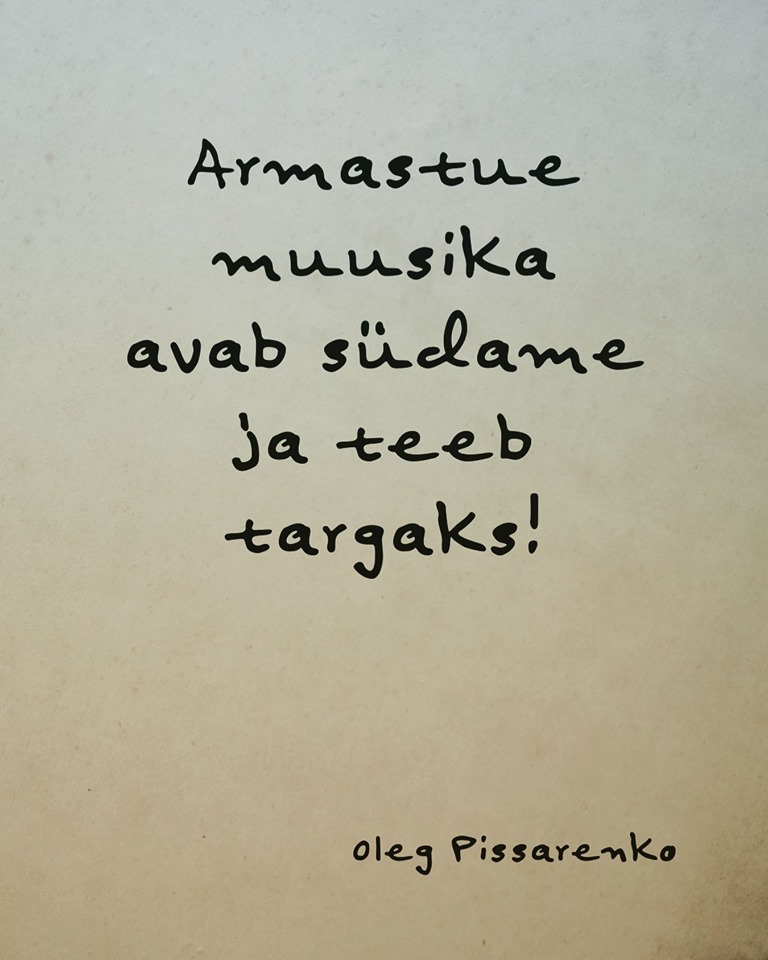 Armastue
muusika
avab südame
ja teeb
targaks!
Oleg Pissarenko